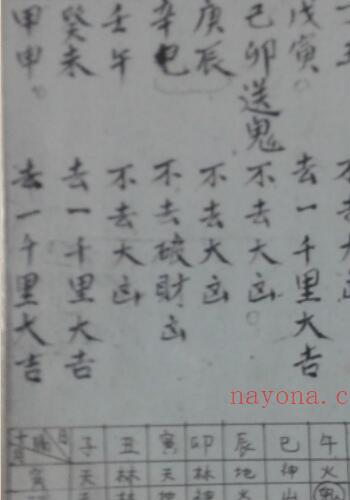 戊寅 去一千里大吉
己卯送鬼 不去大凶
庚辰 不去大凶
辛巳 不去破財凶
壬午 不去大凶
癸未 去一千里大吉
甲申 去一千里大吉
nayona.cn
月 日 子 丑 寅 卯 辰 巳 午
寅 天 林 天 林 地 神 火